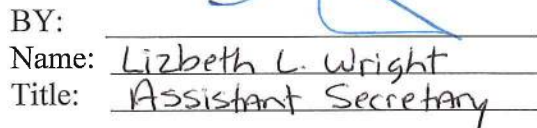 BY:
Name: Lizbeth L. Wright
Title: Assistant Secretary